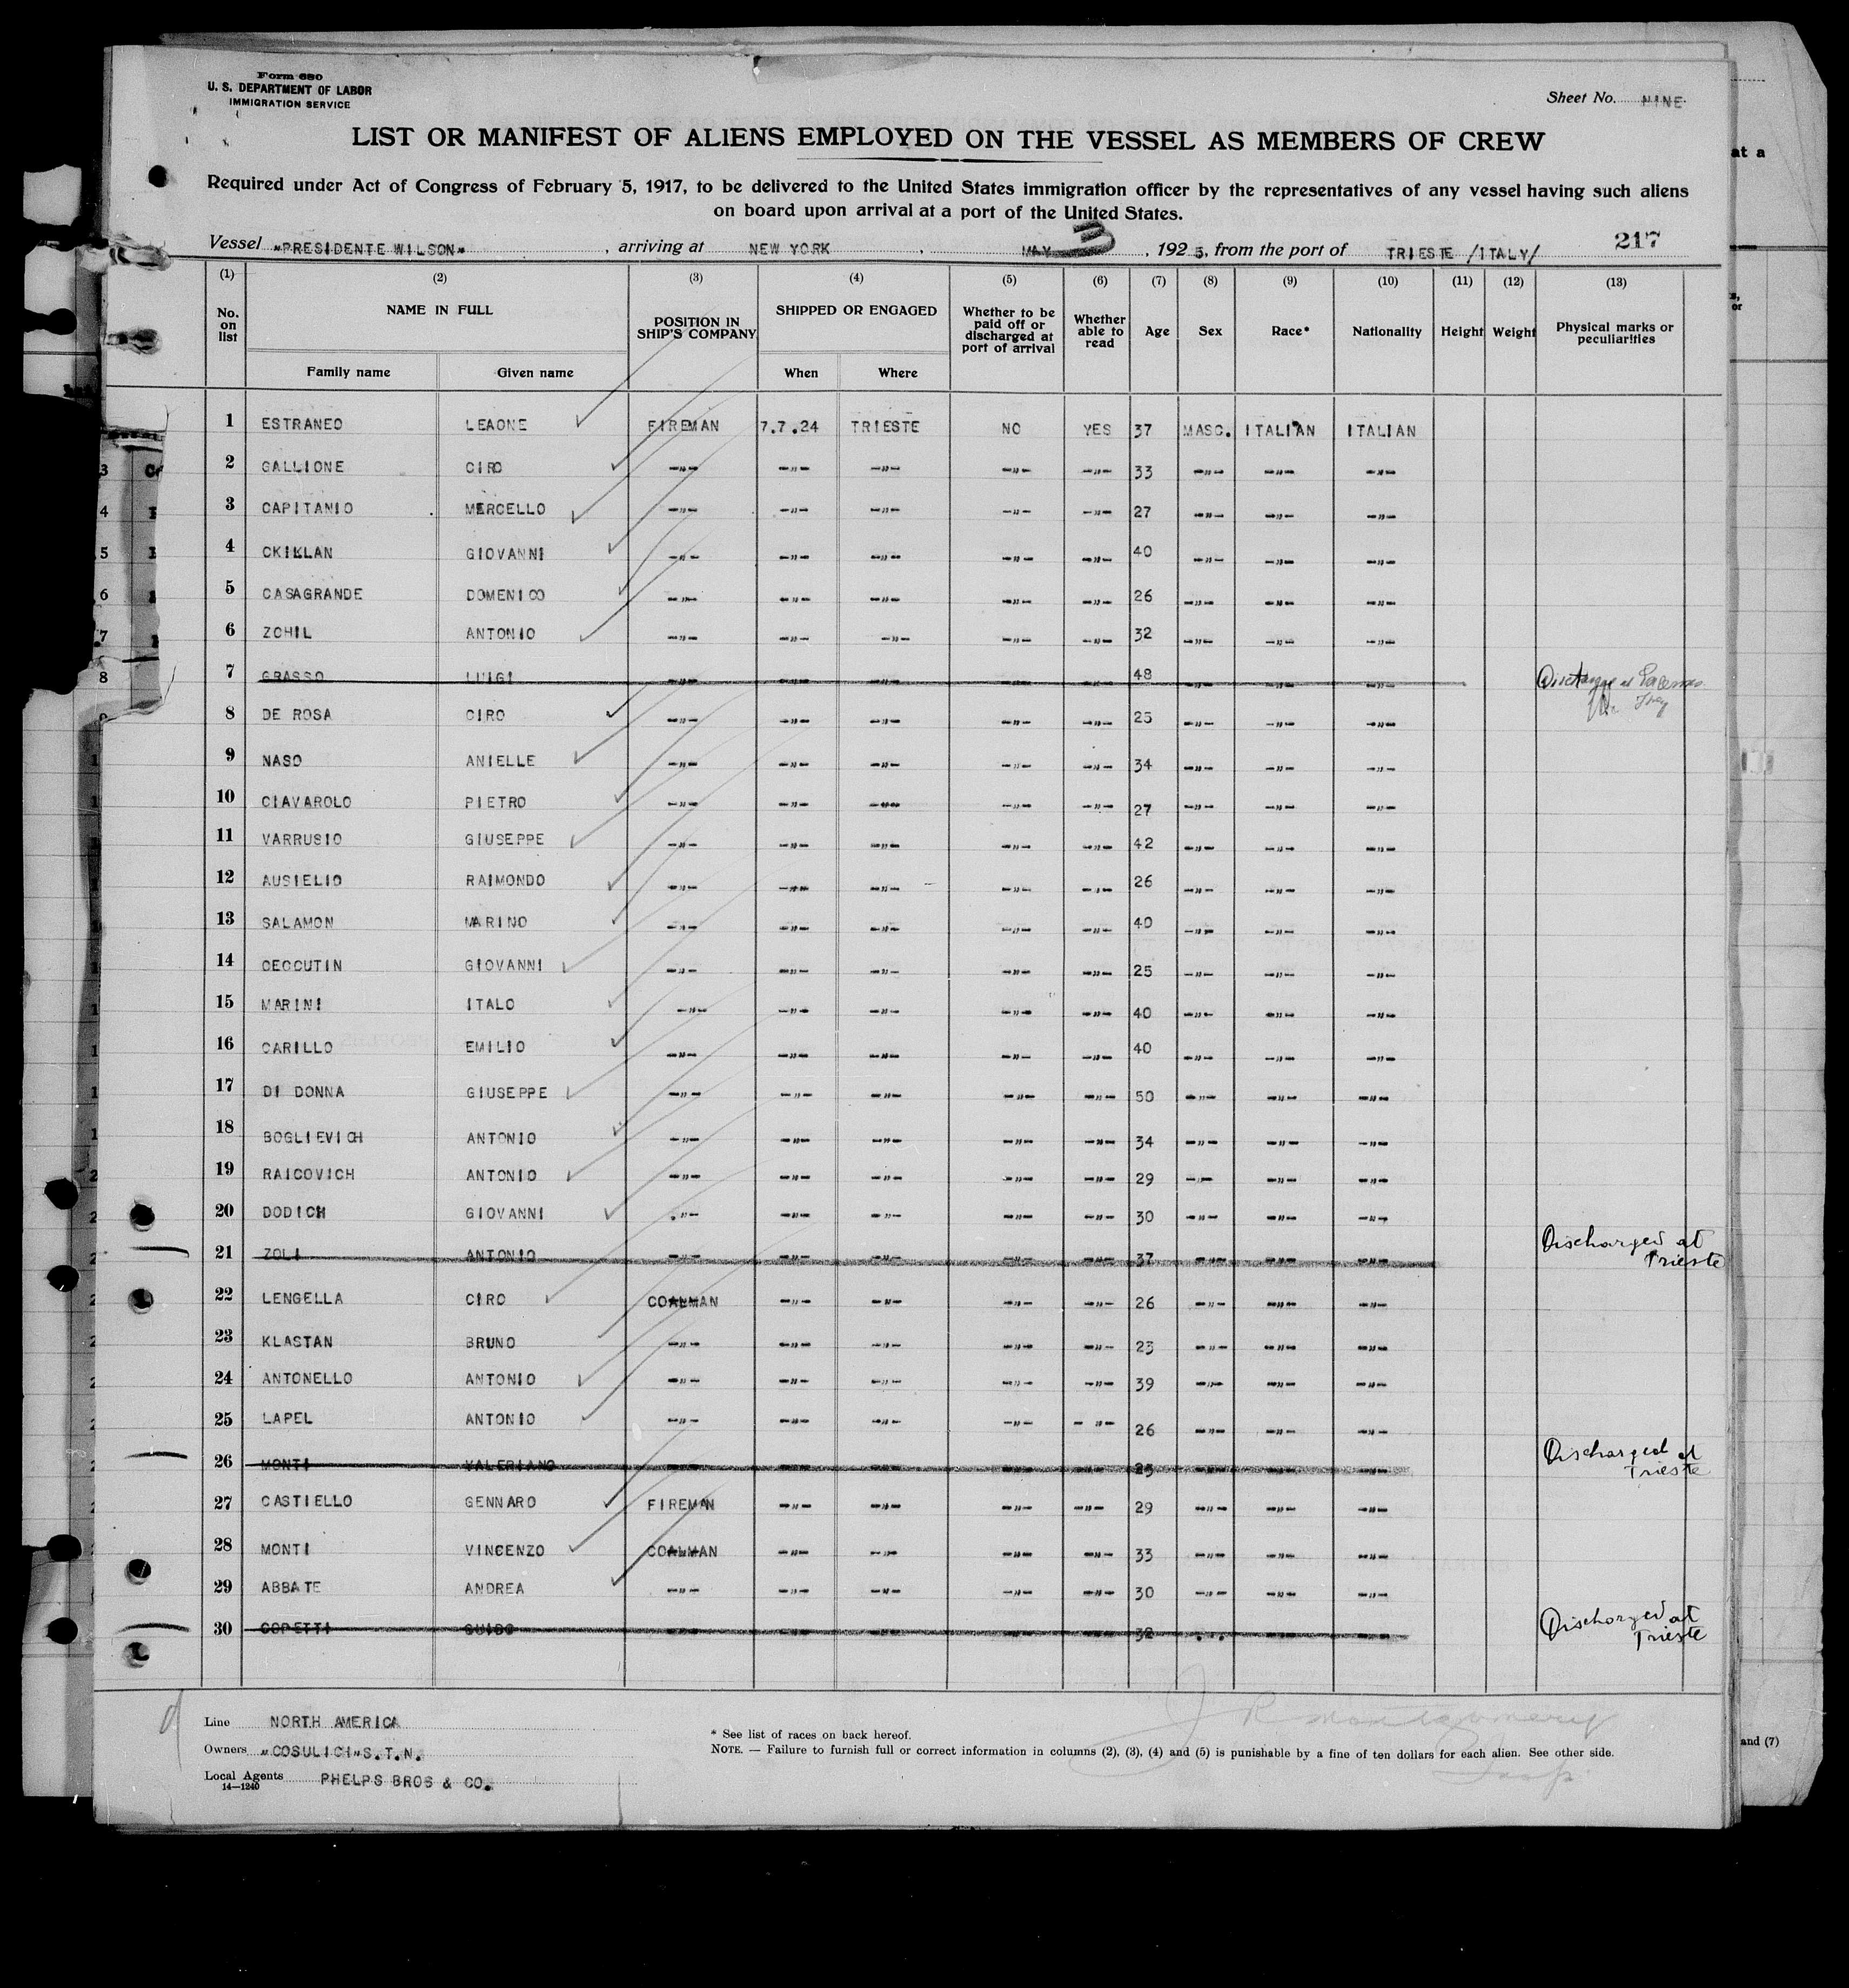 Form 680
U. S. DEPARTMENT OF LABOR
IMMIGRATION SERVICE
Sheet No. NINE
LIST OR MANIFEST OF ALIENS EMPLOYED ON THE VESSEL AS MEMBERS OF CREW
Required under Act of Congress of February 5, 1917, to be delivered to the United States immigration officer by the representatives of any vessel having such aliens
on board upon arrival at a port of the United States.
217
Vessel "PRESIDENTE WILSON" , arriving at NEW YORK , MAY 3 , 1925, from the port of TRIESTE /ITALY/
(1) (2) (3) (4) (5) (6) (7) (8) (9) (10) (11) (12) (13)
No. on list NAME IN FULL POSITION IN SHIP'S COMPANY SHIPPED OR ENGAGED Whether to be paid off or discharged at port of arrival Whether able to read Age Sex Race* Nationality Height Weight Physical marks or peculiarities
Family name Given name When Where
1 ESTRANEO LEAONE FIREMAN 7.7.24 TRIESTE NO YES 37 MASC. ITALIAN ITALIAN
2 GALLIONE CIRO -"- -"- -"- -"- -"- 33 -"- -"- -"-
3 CAPITANIO MERCELLO -"- -"- -"- -"- -"- 27 -"- -"- -"-
4 CKIKLAN GIOVANNI -"- -"- -"- -"- -"- 40 -"- -"- -"-
5 CASAGRANDE DOMENICO -"- -"- -"- -"- -"- 26 -"- -"- -"-
6 ZOHIL ANTONIO -"- -"- -"- -"- -"- 32 -"- -"- -"-
7 GRASSO LUIGI -"- -"- -"- -"- -"- 48 -"- -"- -"-
8 DE ROSA CIRO -"- -"- -"- -"- -"- 25 -"- -"- -"-
9 NASO ANIELLE -"- -"- -"- -"- -"- 34 -"- -"- -"-
10 CIAVAROLO PIETRO -"- -"- -"- -"- -"- 27 -"- -"- -"-
11 VARRUSIO GIUSEPPE -"- -"- -"- -"- -"- 42 -"- -"- -"-
12 AUSIELIO RAIMONDO -"- -"- -"- -"- -"- 26 -"- -"- -"-
13 SALAMON MARINO -"- -"- -"- -"- -"- 40 -"- -"- -"-
14 CECCUTIN GIOVANNI -"- -"- -"- -"- -"- 25 -"- -"- -"-
15 MARINI ITALO -"- -"- -"- -"- -"- 40 -"- -"- -"-
16 CARILLO EMILIO -"- -"- -"- -"- -"- 40 -"- -"- -"-
17 DI DONNA GIUSEPPE -"- -"- -"- -"- -"- 50 -"- -"- -"-
18 BOGLIEVICH ANTONIO -"- -"- -"- -"- -"- 34 -"- -"- -"-
19 RAICOVICH ANTONIO -"- -"- -"- -"- -"- 29 -"- -"- -"-
20 DODICH GIOVANNI -"- -"- -"- -"- -"- 30 -"- -"- -"-
21 ZOLI ANTONIO -"- -"- -"- -"- -"- 37 -"- -"- -"- Discharged at Trieste
22 LENGELLA CIRO COALMAN -"- -"- -"- -"- 26 -"- -"- -"-
23 KLASTAN BRUNO -"- -"- -"- -"- -"- 23 -"- -"- -"-
24 ANTONELLO ANTONIO -"- -"- -"- -"- -"- 39 -"- -"- -"-
25 LAPEL ANTONIO -"- -"- -"- -"- -"- 26 -"- -"- -"-
26 MONTI VALERIANO -"- -"- -"- -"- -"- 23 -"- -"- -"- Discharged at Trieste
27 CASTIELLO GENNARO FIREMAN -"- -"- -"- -"- 29 -"- -"- -"-
28 MONTI VINCENZO COALMAN -"- -"- -"- -"- 33 -"- -"- -"-
29 ABBATE ANDREA -"- -"- -"- -"- -"- 30 -"- -"- -"-
30 COPETTI GUIDO -"- -"- -"- -"- -"- 32 -"- -"- -"- Discharged at Trieste
Line NORTH AMERICA
Owners "COSULICH"S.T.N.
Local Agents PHELPS BROS & CO.
14—1240
* See list of races on back hereof.
NOTE. — Failure to furnish full or correct information in columns (2), (3), (4) and (5) is punishable by a fine of ten dollars for each alien. See other side.
J R Montgomery
Insp.
at a
and (7)